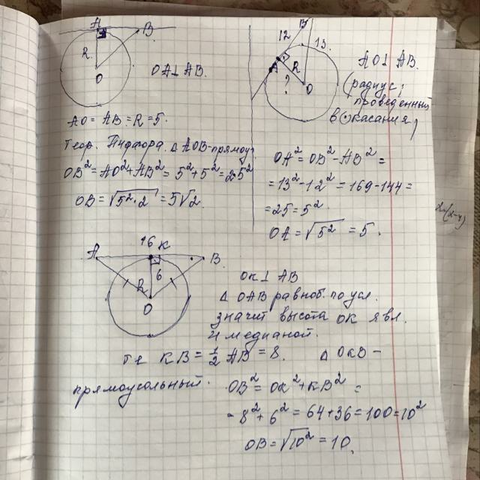 A B
R
O
OA⊥AB.
AO = AB = R = 5.
Теор. Пифагора. Δ AOB-прямоуг
OB² = AO² + AB² = 5² + 5² = 2·5²
OB = √5²·2 = 5√2
B
12 13.
A R
? O
AO⊥AB.
(радиус,
проведенный
в (·) касания)
OA² = OB² - AB² =
= 13² - 12² = 169 - 144 =
= 25 = 5².
OA = √5² = 5.
A 16 K B
R 6
O
OK⊥AB
Δ OAB равноб. по усл.
значит высота OK явл.
и медианой.
те KB = 1/2 AB = 8. Δ OKB –
прямоугольный.
OB² = OK² + KB² =
= 8² + 6² = 64 + 36 = 100 = 10²
OB = √10² = 10.